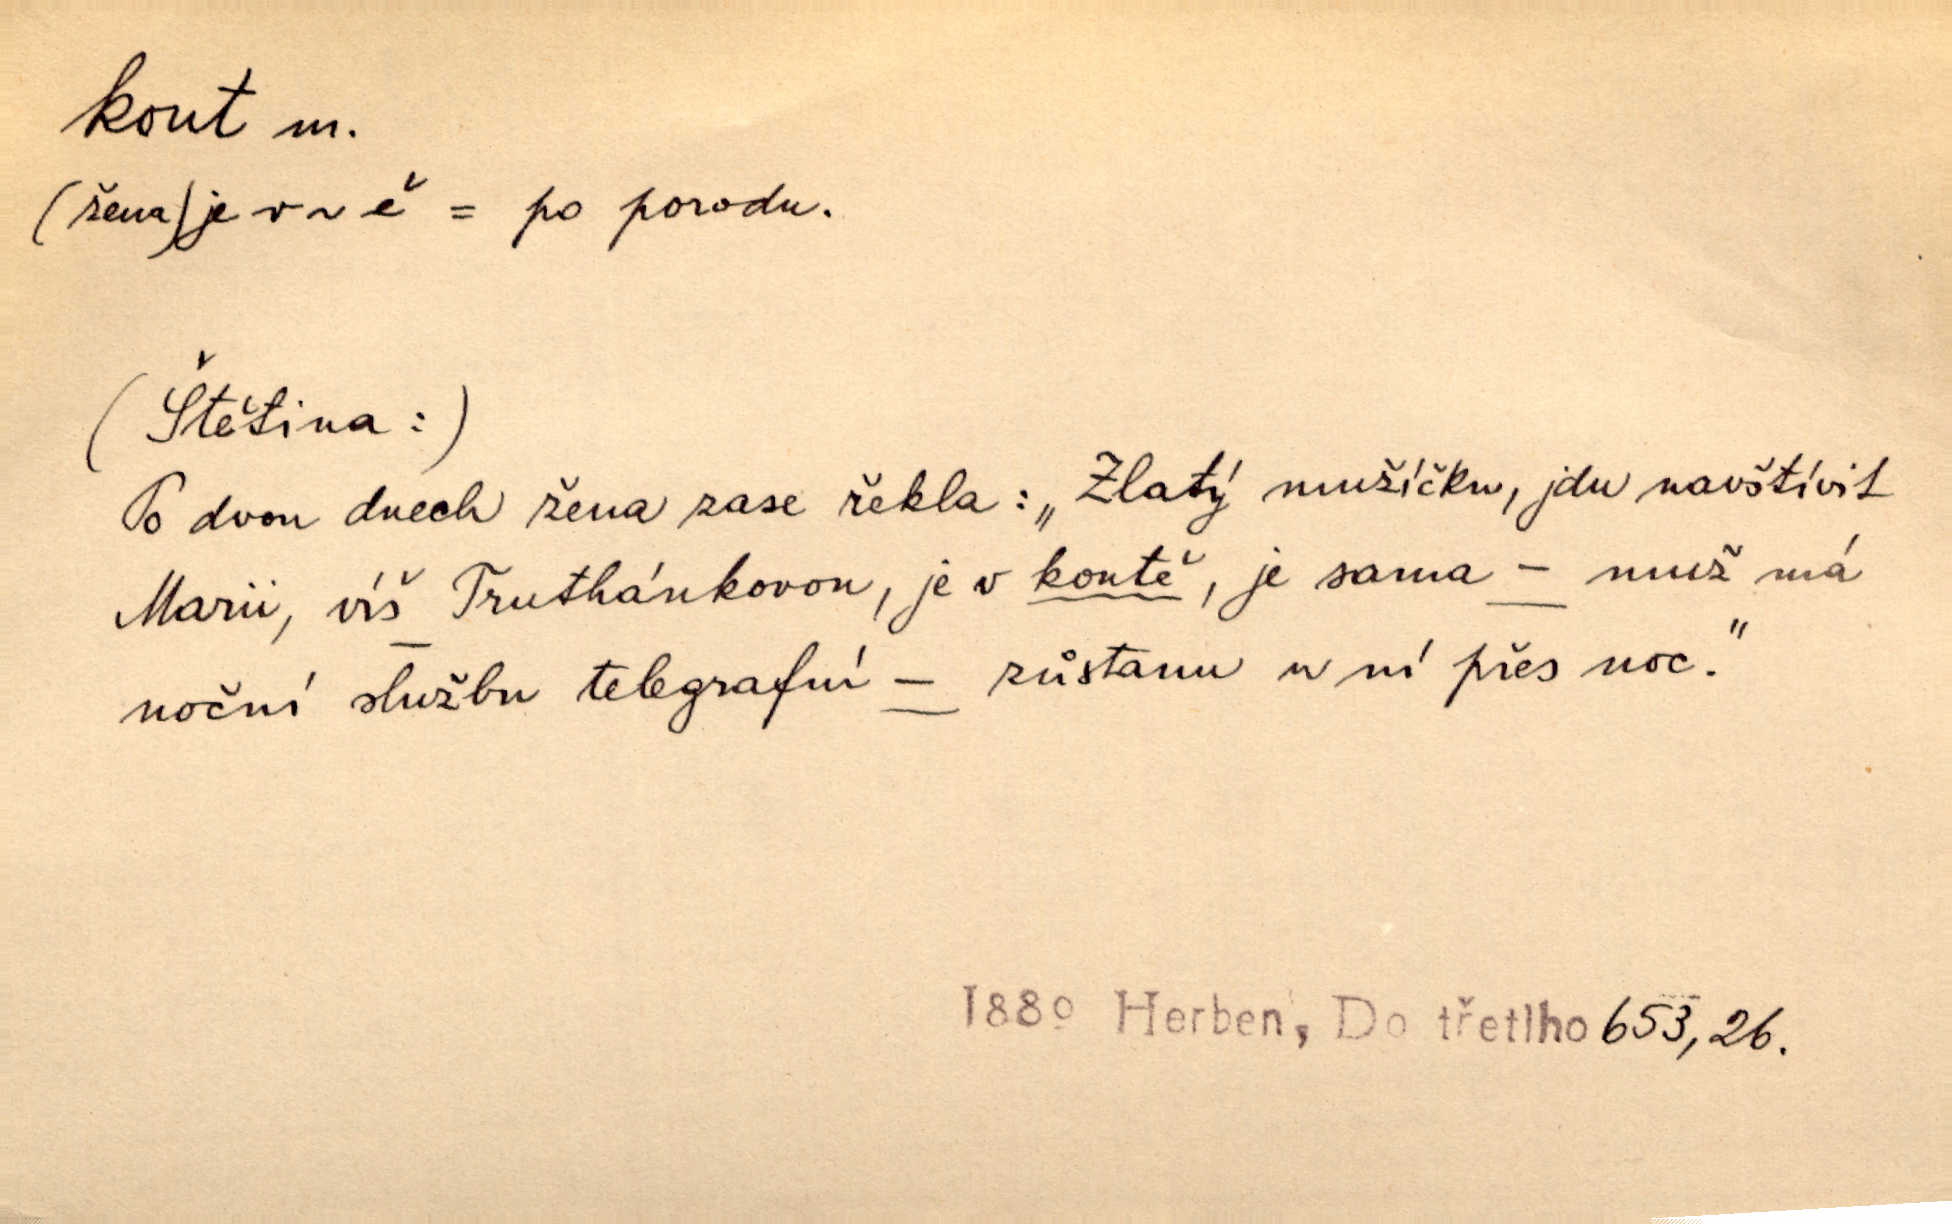 kout m.
(žena) je v ~ ě = po porodu.
(Štětina:)
Po dvou dnech žena zase řekla: „Zlatý mužíčku, jdu navštívit
Marii, víš Truthánkovou, je v koutě, je sama – muž má
noční službu telegrafní – zůstanu u ní přes noc."
1889 Herben, Do třetího 653, 26.